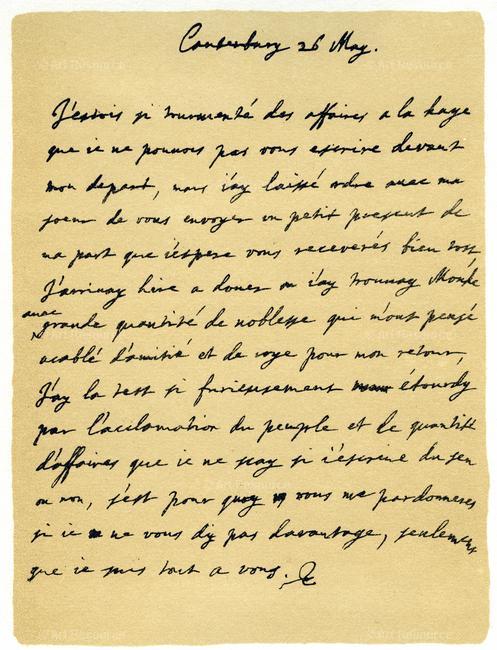 Canterbury 26 May.
J'estois si tourmenté des affaires a la haye
que ie ne pouuois pas vous escrire devant
mon depart, mais i'ay laissé ordre auec ma
soeur de vous envoyer un petit present de
ma part que i'espere vous receverés bien tost
J'arrivay hier a Douer ou i'ay trouvay Monke
auec
grande quantité de noblesse qui m'ont pensé
acablé d'amitié et de ioye pour mon retour,
J'ay la test si furieusement étourdy
par l'acclamation du peuple et le quantité
d'affaires que ie ne scay si i'escrive du sen
ou non, s'est pour quoy vous me pardonneres
si ie ne vous dy pas davantage, seulement
que ie suis tout a vous. C
© Art Resource